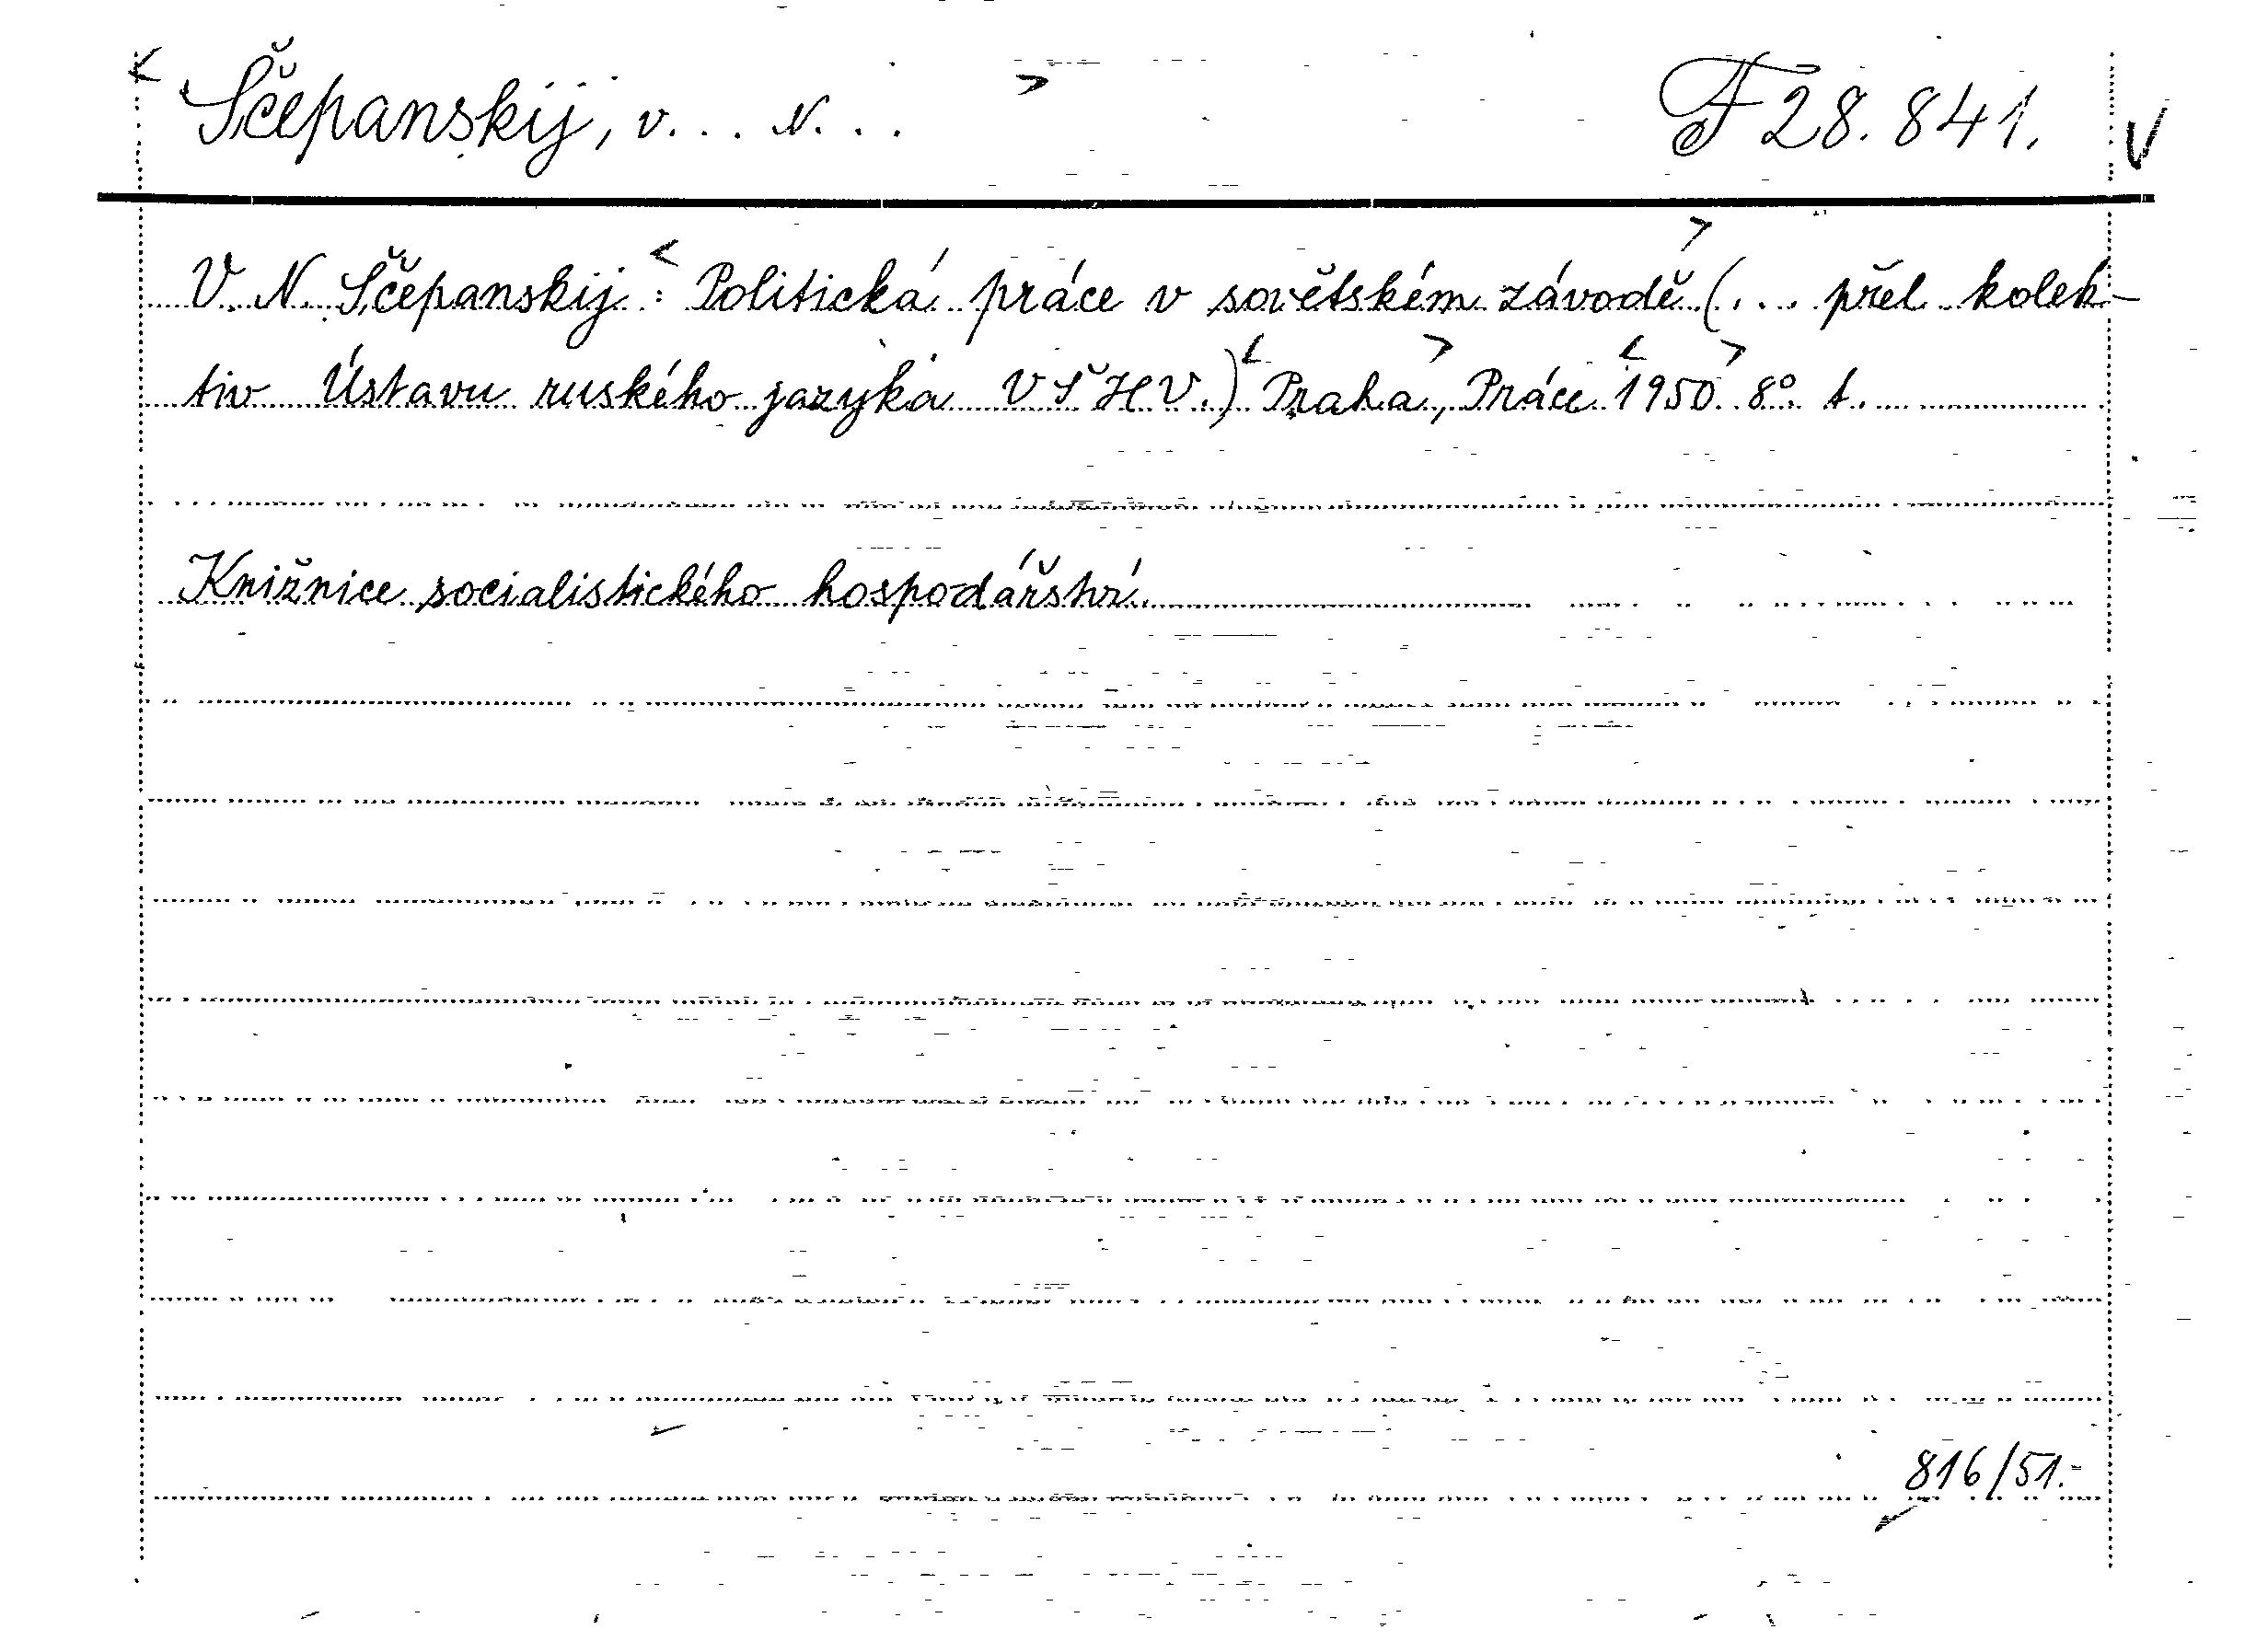 Ščepanskij, V... N... F 28.841.
V. N. Ščepanskij: Politická práce v sovětském závodě (... přel kolek-
tiv Ústavu ruského jazyka VŠHV.) Praha, Práce 1950. 8°. t.
Knižnice socialistického hospodářství.
816/51.-